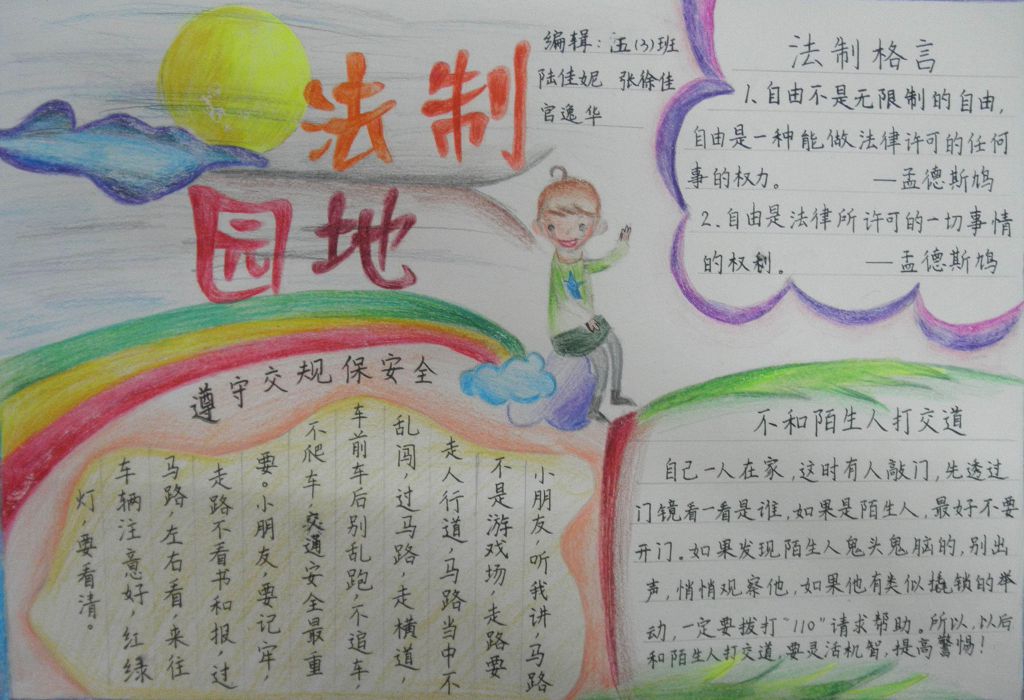 法制
园地
编辑:五(3)班
陆佳妮 张徐佳
官逸华
法制格言
1、自由不是无限制的自由,
自由是一种能做法律许可的任何
事的权力。 —孟德斯鸠
2、自由是法律所许可的一切事情
的权利。 —孟德斯鸠
遵守交规保安全
小朋友,听我讲,马路
不是游戏场,走路要
走人行道,马路当中不
乱闯,过马路,走横道,
车前车后别乱跑,不追车,
不爬车,交通安全最重
要。小朋友,要记牢,
走路不看书和报,过
马路,左右看,来往
车辆注意好,红绿
灯,要看清。
不和陌生人打交道
自己一人在家,这时有人敲门,先透过
门镜看一看是谁,如果是陌生人,最好不要
开门。如果发现陌生人鬼头鬼脑的,别出
声,悄悄观察他,如果他有类似撬锁的举
动,一定要拨打"110"请求帮助。所以,以后
和陌生人打交道,要灵活机智,提高警惕!